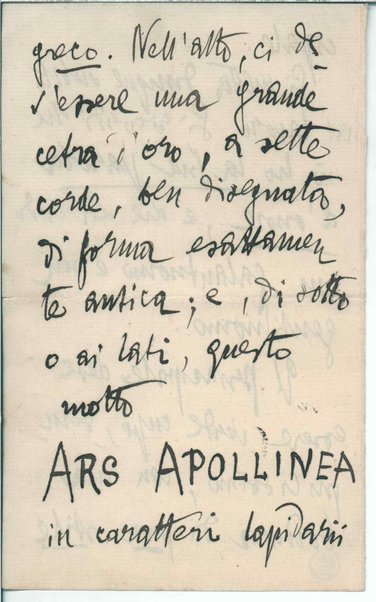 greco. Nell'alto, ci de
v'essere una grande
cetra d'oro, a sette
corde, ben disegnata,
di forma esattamen
te antica; e, di sotto
o ai lati, questo
motto
ARS APOLLINEA
in caratteri lapidarii